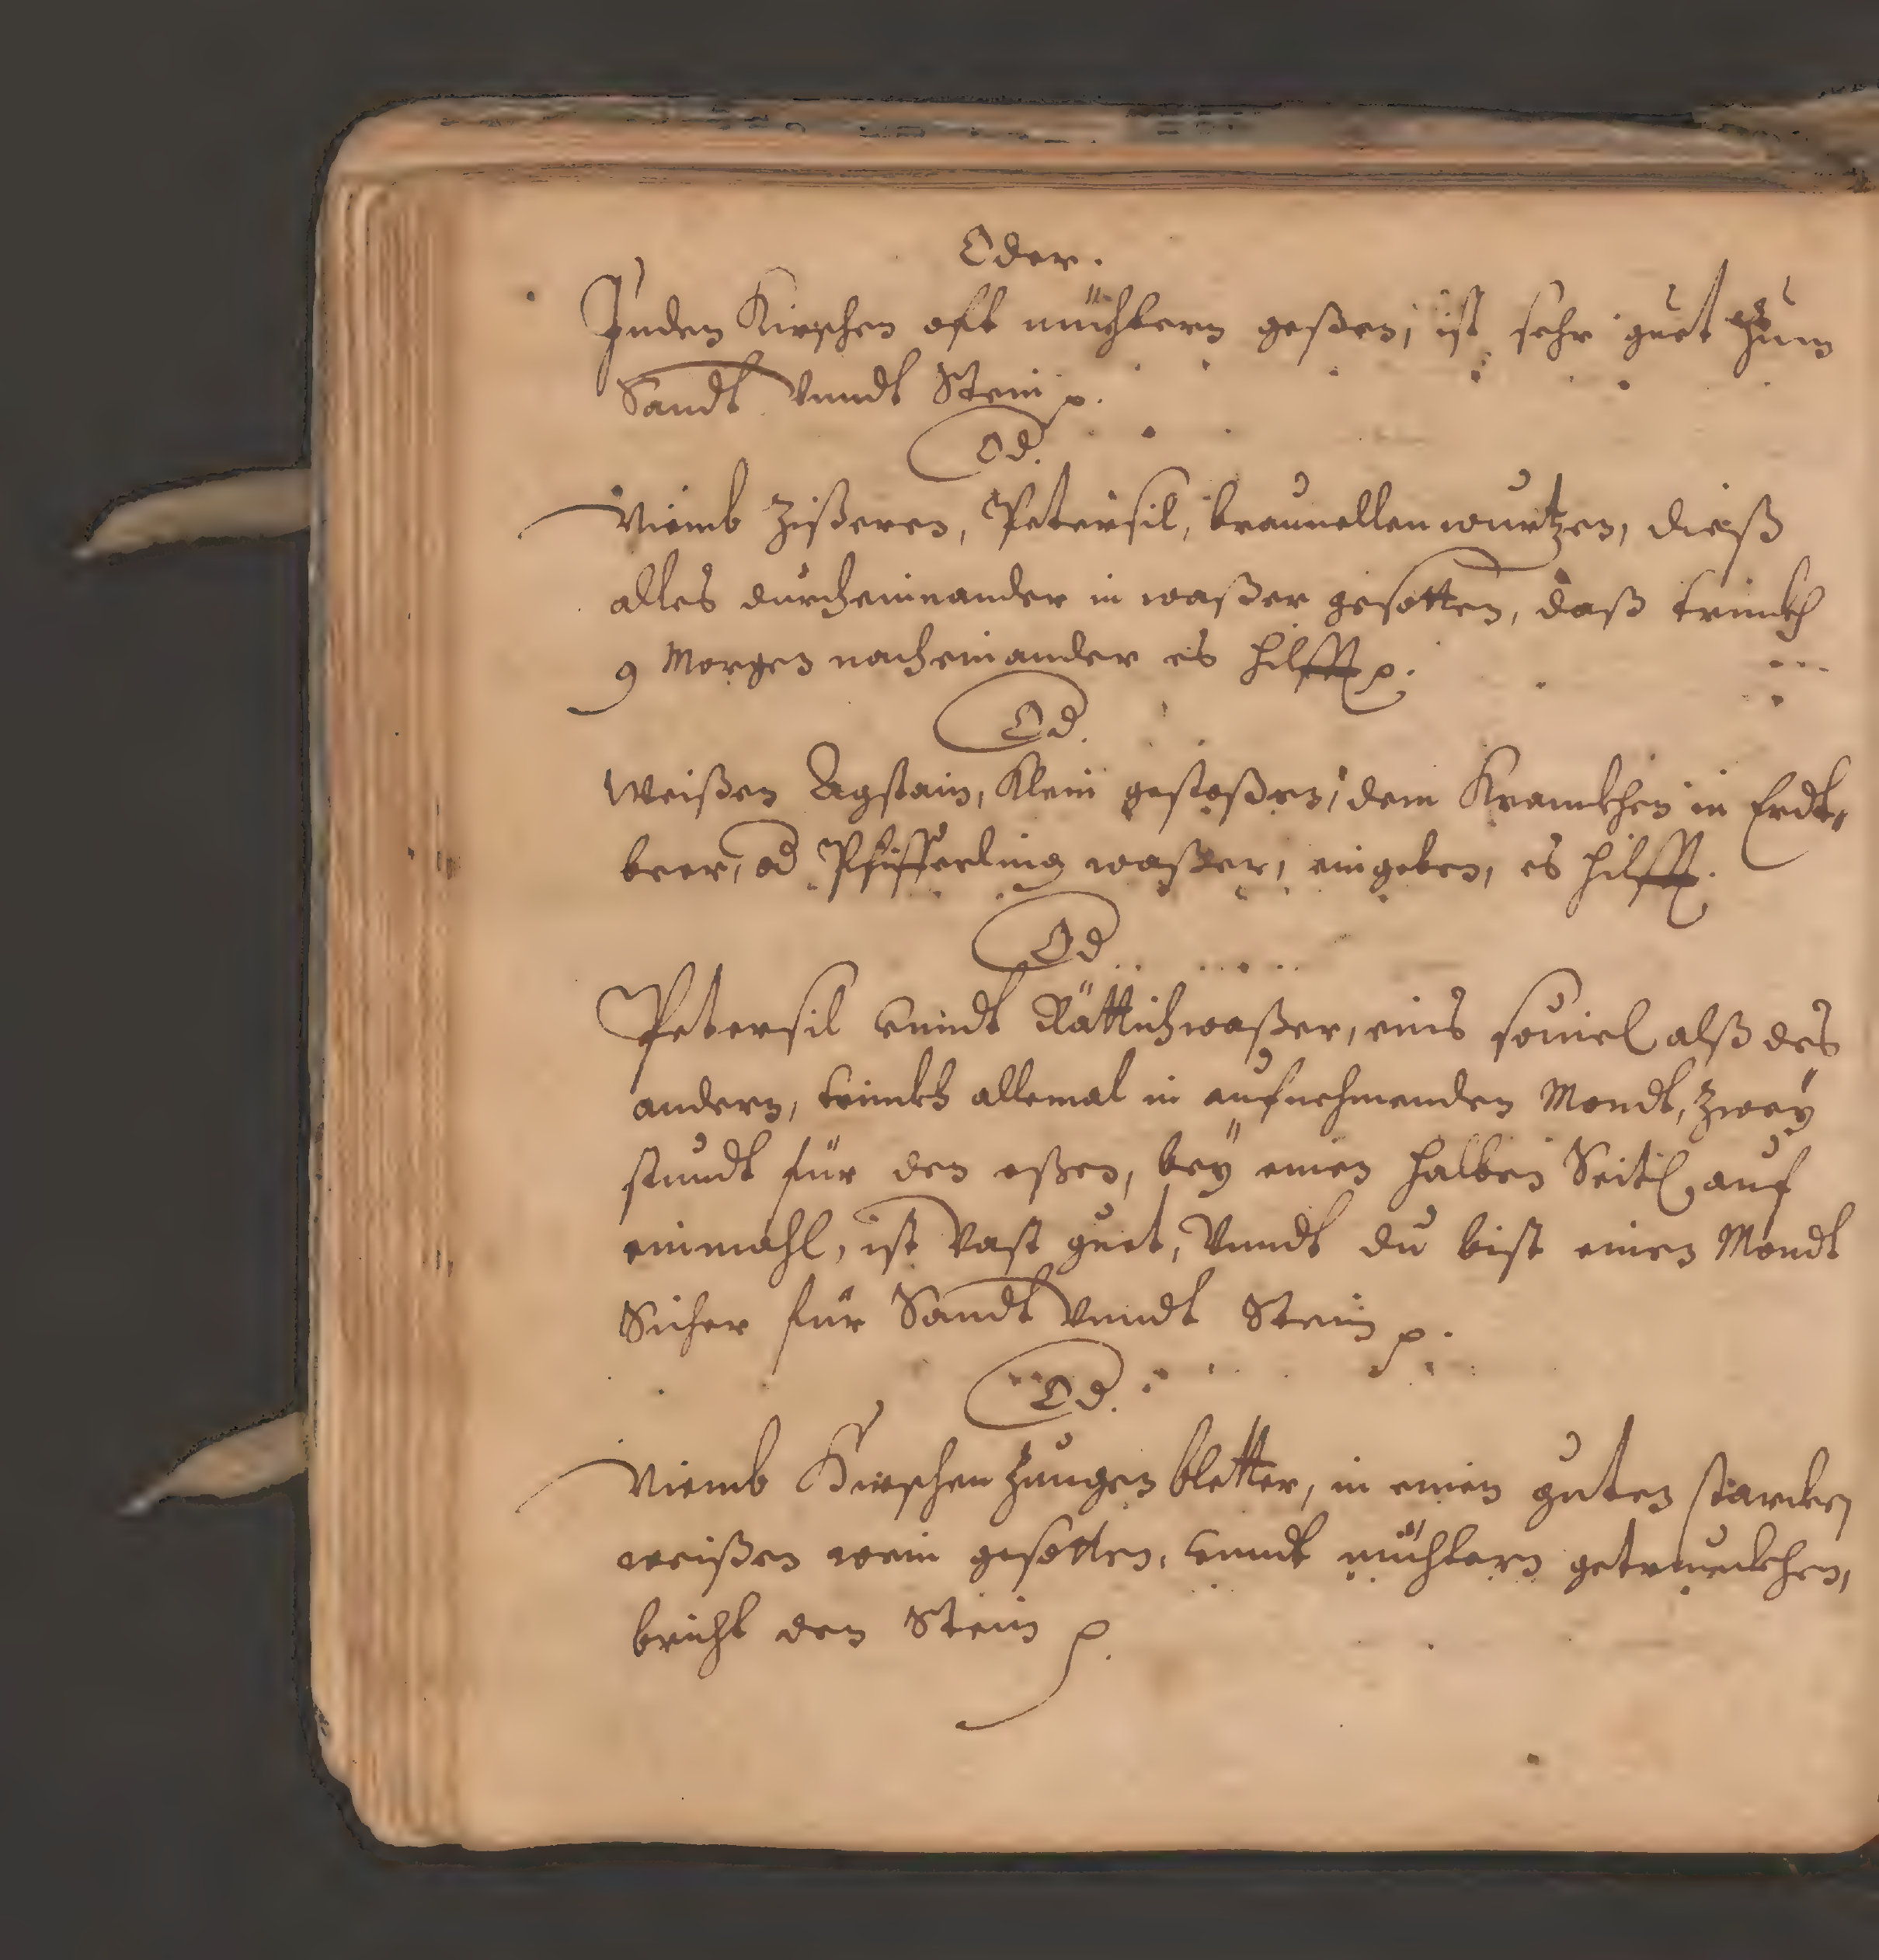 Oder.
Juden Kirschen oft nüchtern geßen, ist sehr guet zum
Sandt vnndt Stein p.
Od.
Niemb Zißeren, Petersil, braunellenwurtzen, dieß
alles durcheinander in waßer gesotten, daß trinckh
9 Morgen nacheinander es hilfft p.
Od.
Weißen Agstain, klein gestoßen, dem Kranckhen in Erdt-
beer, od Pfifferling waßer, eingeben, es hilfft.
Od
Petersil vnndt Rättichwaßer, eins souiel alß des
andern, trinckh allemal in aufnehmenden Mondt, zwey
stundt für den eßen, bey einen halben Seitl auf
einmahl, ist vast guet, vnndt du bist einen Mondt
Sicher für Sandt vnndt Stein p.
Od.
Niemb Hirschenzungen bletter, in einen guten starcken
weißen wein gesotten, vnndt nüchtern getrunckhen,
bricht den Stein p.